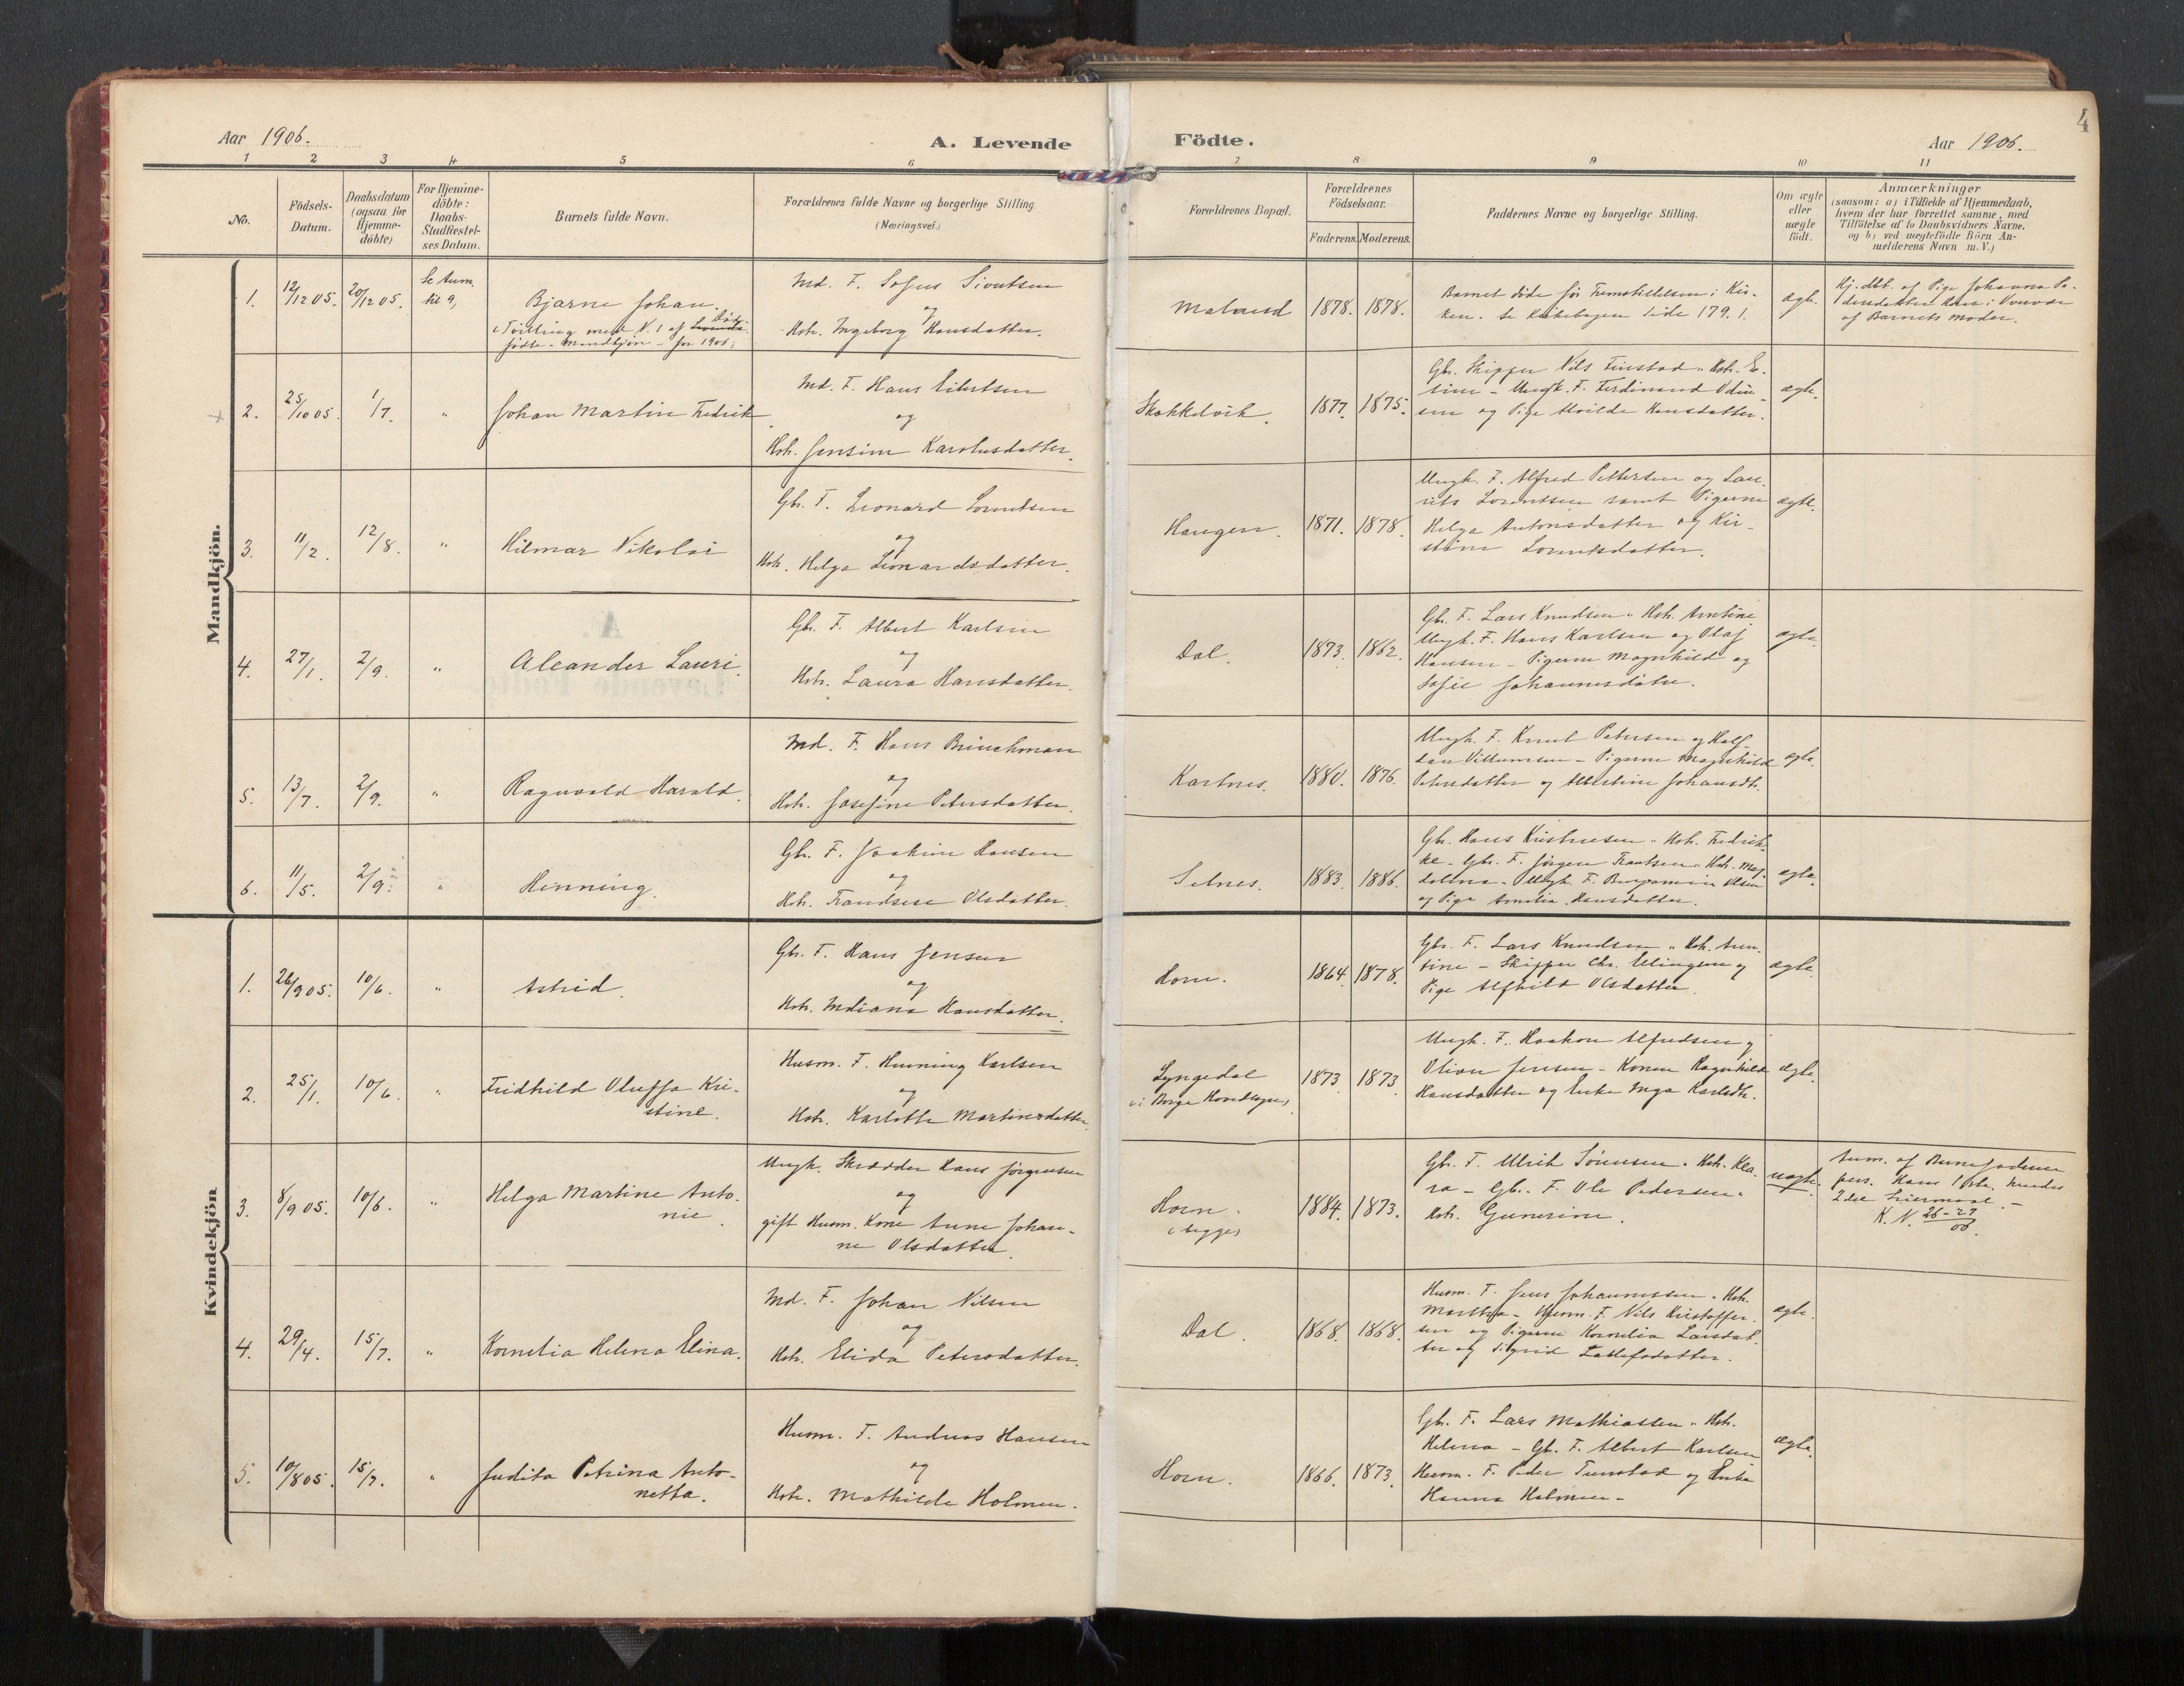 4
Aar 1906.
A. Levende
Födte.
Aar 1906.
1 2 3 4 5 6 7 8 9 10 11
No.
Födsels-
Datum.
Daabsdatum
(ogsaa for
Hjemme-
döbte)
For Hjemme-
döbte:
Daabs-
Stadfæstel-
ses Datum.
Barnets fulde Navn.
Forældrenes fulde Navne og borgerlige Stilling
(Næringsvei.)
Forældrenes Bopæl.
Forældrenes
Födselsaar.
Faderens. Moderens.
Faddernes Navne og borgerlige Stilling.
Om ægte
eller
uægte
födt.
Anmærkninger
(saasom: a) i Tilfælde af Hjemmedaab,
hvem der har forrettet samme, med
Tilföielse af to Daabsvidners Navne.
og b) ved uægtefödte Börn An-
melderens Navn m. V.)
Mandkjön.
1.
12/12 05.
20/12 05.
Se Anm.
til 9,
Bjarne Johan.
Tvilling med N. 1 af Levende Död-
födte - Mandkjön - for 1905,
Md. F. Sofus
og
Hstr. Ingeborg Hansdatter.
1878. 1878.
Barnet döde för Fremstillelsen i Kir-
ken. Se Kirkebogen Side 179. 1.
ægte.
Hj. dbt. af Pige Johanna Pe-
dersdatter
af Barnets Moder.
2.
25/10 05.
1/7.
"
Johan Martin Fredrik
Md. F. Hans Eilertsen
og
Hstr. Jensine Karolusdatter.
1877. 1875.
Gbr. Skipper Nils Finstad " Hstr. E-
- Ungk. F. Ferdinand Odin-
sen og Pige Hansdatter.
ægte.
3.
11/2.
12/8.
"
Hilmar Nikolai
Gbr. F. Leonard Lorentsen
og
Hstr. Helga Leonardsdatter.
Haugen.
1871. 1878.
Ungk. F. Alfred Pettersen og Lau-
rits Lorentsen samt Pigerne
Helga Antonsdatter og Kir-
stine Lorentsdatter.
ægte.
4.
27/1.
2/9.
"
Aleander Lauri.
Gbr. F. Albert Karlsen
og
Hstr. Laura Hansdatter.
Dal.
1873. 1862.
Gbr. F. Lars Knudsen " Hstr. Arntine
Ungk. F. Hans Karlsen og Olaf
Hansen - Pigerne Magnhild og
Sofie Johannesdatter.
ægte.
5.
13/7.
2/9.
"
Ragnvald Harald.
Md. F. Hans Brinchman
og
Hstr. Josefine Petersdatter.
Kartnes.
1880. 1876.
Ungk. F. Knut Petersen og Half-
dan Villumsen - Pigerne Magnhild
Petersdatter og Albertine Johansdtr.
ægte.
6.
11/5.
2/9.
"
Henning.
Gbr. F. Joakim Hansen
og
Hstr. Frandsese Olsdatter.
Selnes.
1883. 1886.
Gbr. Hans Kristensen " Hstr. Fredrik-
ke - Gbr. F. Jörgen Frantsen " Hstr. Mag-
dalena - Ungk. F. Benjamin Olsen
og Pige Amelia Hansdatter.
ægte.
Kvindekjön
1.
26/9 05.
10/6.
"
Astrid.
Gbr. F. Hans Jensen
og
Hstr. Indiana Hansdatter.
Horn.
1864. 1878.
Gbr. F. Lars Knudsen " Hstr. Arn-
tine - Skipper Chr. Ellingsen og
Pige Alfhild Olsdatter.
ægte.
2.
25/1.
10/6.
"
Fridhild Oluffa Kri-
stine.
Husm. F. Henning Karlsen
og
Hstr. Karlotte Martinsdatter.
Lyngedal
(i Borge Hovedsogn)
1873 1873
Ungk. F. Haakon Alfredsen og
Oliver Jensen - Konen Ragnhild
Hansdatter og Enke Inga Karlsdtr.
ægte.
3.
8/9 05.
10/6.
"
Helga Martine Anto-
nie.
Ungk. Skrædder Hans Jörgensen
og
gift Husm. Kone Anne Johan-
ne Olsdatter.
Horn.
(begge)
1884. 1873.
Gbr. F. Ulrik Sörensen " Hstr. Kla-
ra - Gbr. F. Ole Pedersen "
Hstr. Gunerine.
uægte.
Anm. af Barnefaderen
pers. Hans 1ste, hendes
2det Leiermaal. -
K. N. 26-27/06.
4.
29/4.
15/7.
"
Kornelia Helena Elina.
Md. F. Johan Nilsen
og
Hstr. Elida Petersdatter.
Dal.
1868. 1868.
Husm. F. Jens Johannessen " Hstr.
Martha - Husm. F. Nils Kristoffer-
sen og Pigerne Kornelia Larsdat-
ter og Sigrid
ægte.
5.
10/8 05.
15/7.
"
Judita Petrina Anto-
netta.
Husm. F. Andreas Hansen
og
Hstr. Mathilde Holmen.
Horn.
1866. 1873.
Gbr. F. Lars Mathiassen " Hstr.
Helena - Gbr. F. Albert Karlsen
Husm. F. Peder Tunstad og Enke
Hanna Holmen -
ægte.